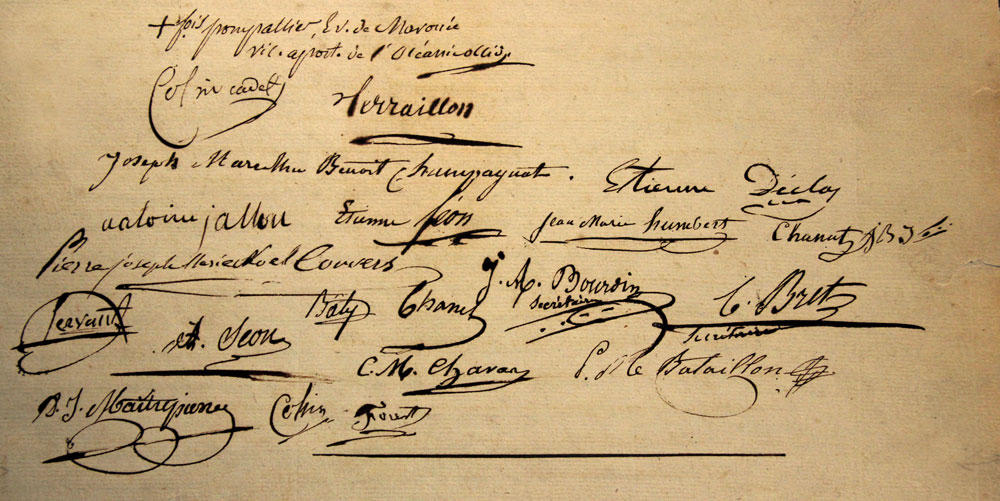 + fois pompallier, Ev. de Maronée
vic. apost. de l'Océanie occid.
Colin cadet Terraillon
Joseph Marcellin Benoit Champagnat. Etienne Déclas
antoine jallon Etienne Séon Jean Marie humbert Chanut
Pierre joseph Marie Noel Convers J. A. Bourdin
Secrétaire
Servant Baty Chanel C. Bret
Secrétaire
A. Séon C. M. Chavas P. M. Bataillon
D. J. Maîtrepierre Colin Forest